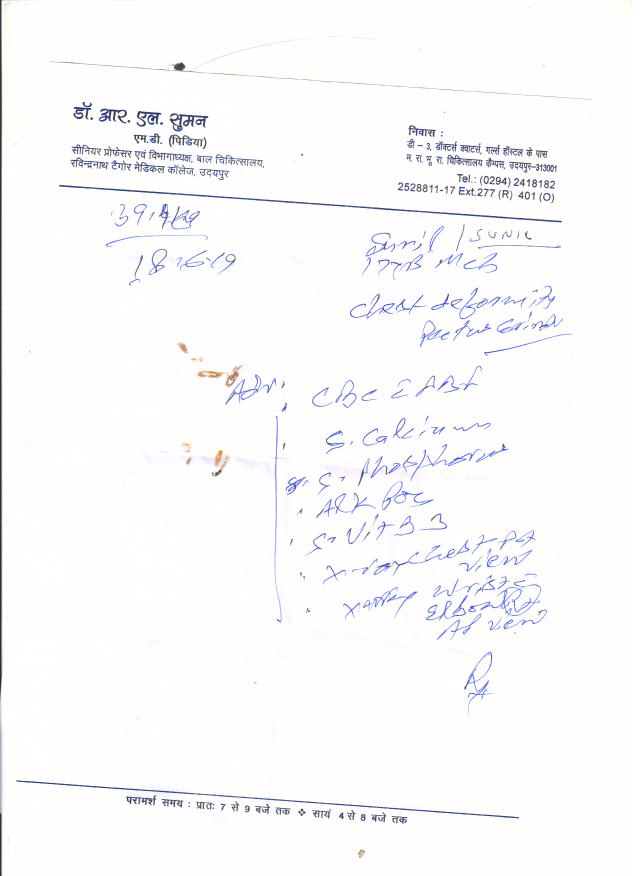 डॉ. आर. एल. सुमन
एम.डी. (पिडिया)
सीनियर प्रोफेसर एवं विभागाध्यक्ष, बाल चिकित्सालय,
रविन्द्रनाथ टैगोर मेडिकल कॉलेज, उदयपुर
निवास :
डी – 3, डॉक्टर्स क्वाटर्स, गर्ल्स हॉस्टल के पास
म. रा. भू. रा. चिकित्सालय कैम्पस, उदयपुर–313001
Tel.: (0294) 2418182
2528811-17 Ext.277 (R) 401 (O)
18-6-19
Sunil / SUNIL
Chest deformity
Adv.
CBC
S. Calcium
S. Phosphorus
ALK
S. Vit D 3
X-ray Chest PA
view
X-ray Wrist
Elbow
AP view
परामर्श समय : प्रातः 7 से 9 बजे तक ❖ सायं 4 से 8 बजे तक